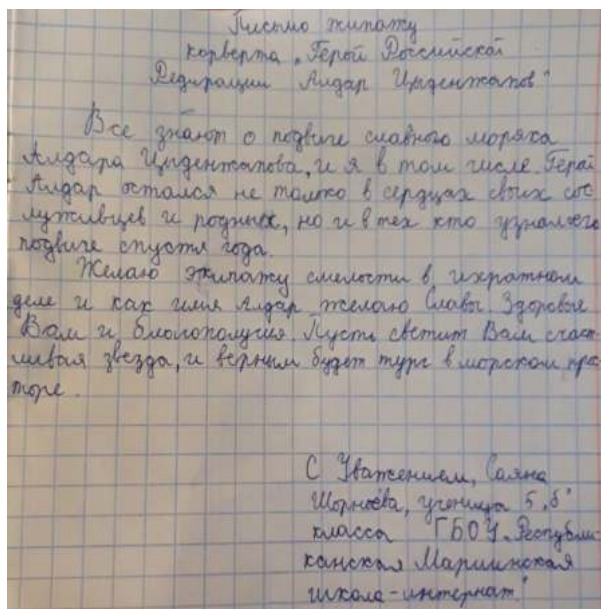 Письмо экипажу
корверта „Герой Российской
Федирации Алдар Цыденжапов"
Все знают о подвиге славного моряка
Алдара Цыденжапова, и я в том числе. Герой
Алдар остался не только в сердцах своих сос
луживцев и родных, но и в тех кто узнал о его
подвиге спустя года.
Желаю экипажу смелости в их ратном
деле и как имя Алдар желаю Славы. Здоровья
Вам и благополучия. Пусть светит Вам счаст-
ливая звезда, и верным будет в морском про
торе.
С Уважением, Саяна
ученица 5 „б"
класса ГБОУ „Республи-
канская Мариинская
школа-интернат."